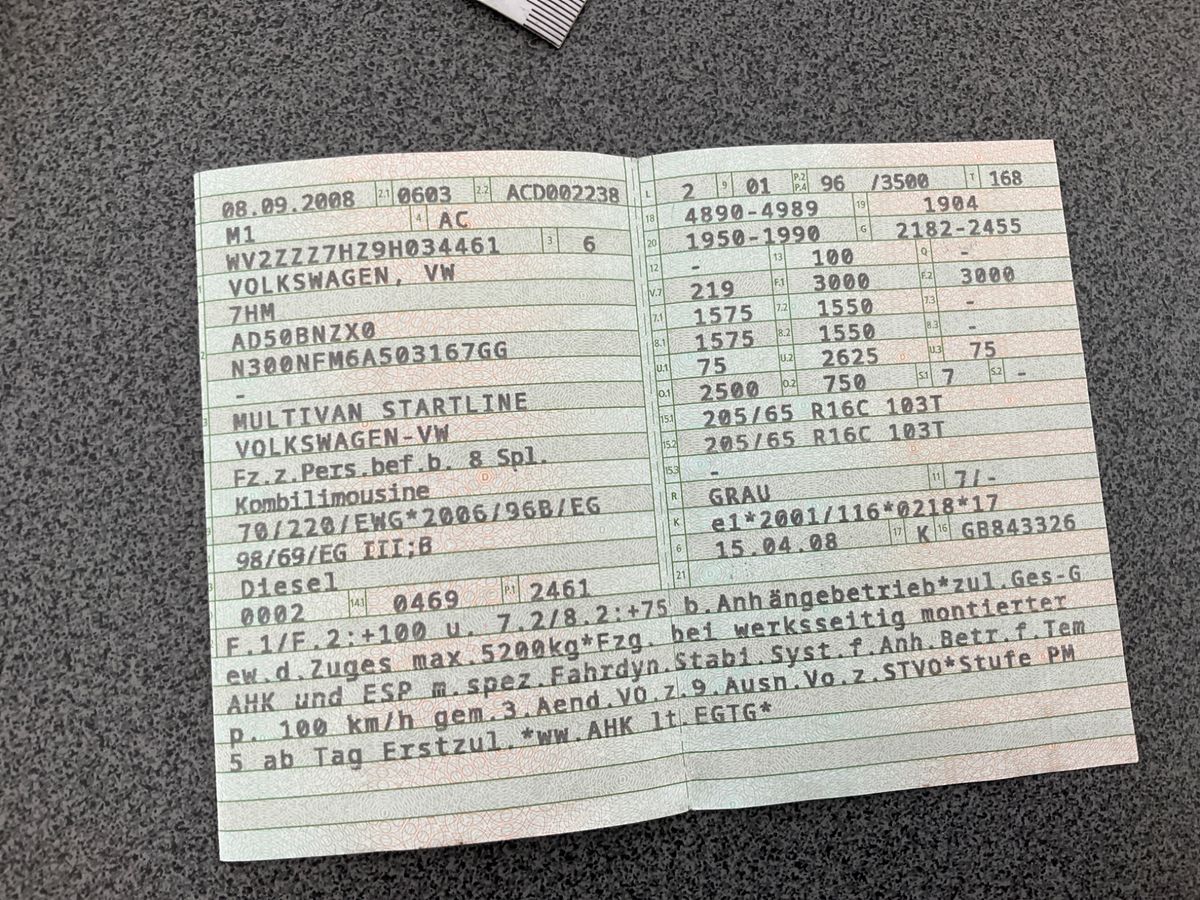 08.09.2008 2.1 0603 2.2 ACD002238
M1 4 AC
WV2ZZZ7HZ9H034461 3 6
VOLKSWAGEN, VW
7HM
AD50BNZX0
N300NFM6A503167GG
-
MULTIVAN STARTLINE
VOLKSWAGEN-VW
Fz.z.Pers.bef.b. 8 Spl.
Kombilimousine
70/220/EWG*2006/96B/EG
98/69/EG III;B
Diesel
0002 14.1 0469 P.1 2461
L 2 9 01 P.2 P.4 96 /3500 T 168
18 4890-4989 19 1904
20 1950-1990 G 2182-2455
12 - 13 100 Q -
V.7 219 F.1 3000 F.2 3000
7.1 1575 7.2 1550 7.3 -
8.1 1575 8.2 1550 8.3 -
U.1 75 U.2 2625 U.3 75
O.1 2500 O.2 750 S.1 7 S.2 -
15.1 205/65 R16C 103T
15.2 205/65 R16C 103T
15.3 -
R GRAU 11 7/-
K e1*2001/116*0218*17
6 15.04.08 17 K 16 GB843326
21
F.1/F.2:+100 u. 7.2/8.2:+75 b.Anhängebetrieb*zul.Ges-G
ew.d.Zuges max.5200kg*Fzg. bei werksseitig montierter
AHK und ESP m.spez.Fahrdyn.Stabi.Syst.f.Anh.Betr.f.Tem
p. 100 km/h gem.3.Aend.VO.z.9.Ausn.Vo.z.STVO*Stufe PM
5 ab Tag Erstzul.*ww.AHK lt.EGTG*